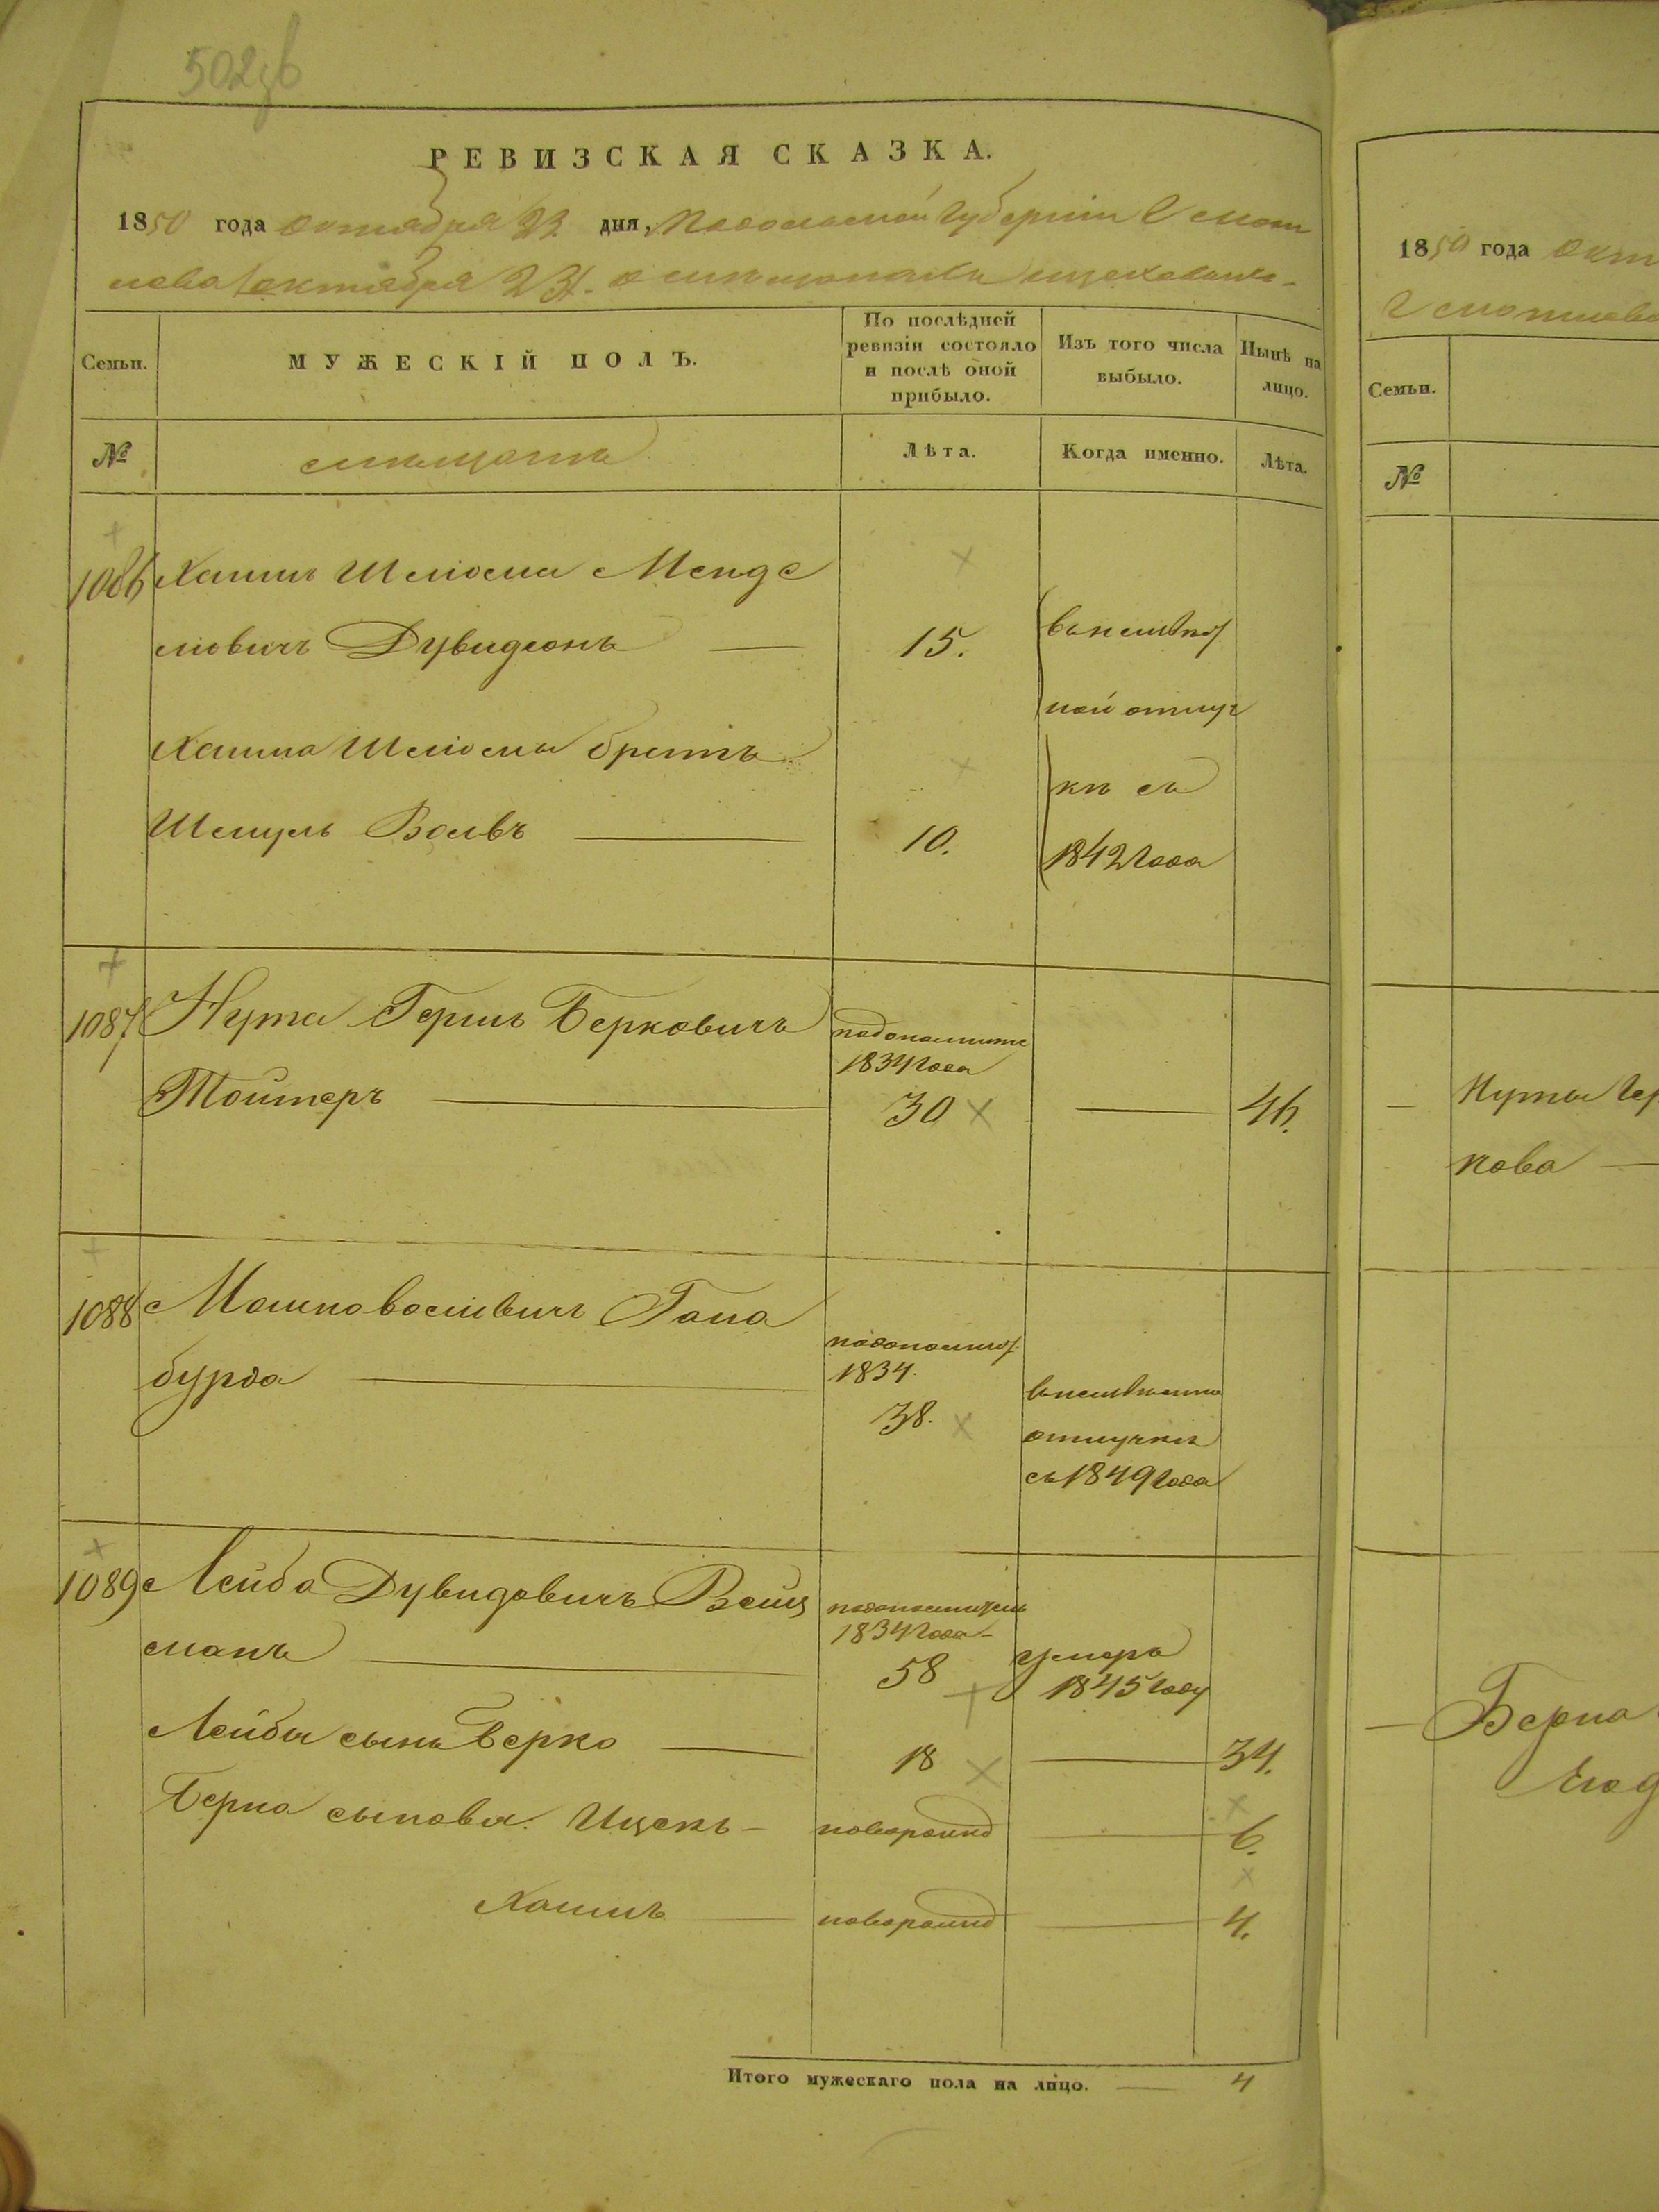 502об
РЕВИЗСКАЯ СКАЗКА.
1850 года октября 23 дня, Подольской Губернии
октября 23. о
Семьи.
МУЖЕСКІЙ ПОЛЪ.
По послѣдней ревизіи состояло и послѣ оной прибыло.
Изъ того числа выбыло.
Нынѣ на лицо.
№
Лѣта.
Когда именно.
Лѣта.
1086
Хаимъ Шлиома Менде
лювичъ Дувидзонъ
15.
въ неизвѣст
ной отлуч
Хаима Шлиомы братъ
кѣ съ
Шмуль Вольвъ
10.
1842 года
1087
Нута Гершъ Берковичъ
1834 года
Тойтеръ
30
46.
1088
Мошко Гона
бурда
1834.
38.
отлучкѣ
съ 1849 года
1089
Лейба Дувидовичъ Вейц
манъ
1834 года
58
умеръ
1845 году
Лейбы сынъ Берко
18
34.
Берка сыновья Ицекъ
новорожд
6.
Хаимъ
новорожд
4.
Итого мужескаго пола на лицо.
4
1850 года окт
Семьи.
№
Нуты Гер
кова
Берка